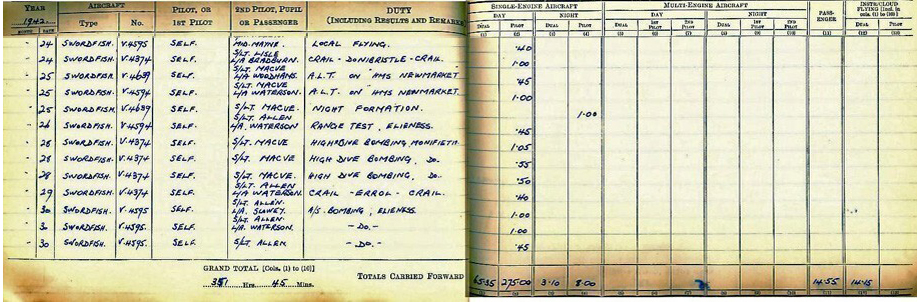 YEAR AIRCRAFT PILOT, OR 1ST PILOT 2ND PILOT, PUPIL OR PASSENGER DUTY (INCLUDING RESULTS AND REMARKS) SINGLE-ENGINE AIRCRAFT MULTI-ENGINE AIRCRAFT PASSENGER INSTR/CLOUD FLYING [Incl. in cols. (1) to (10)]
1942 Type No. DAY NIGHT DAY NIGHT
MONTH DATE DUAL PILOT DUAL PILOT DUAL 1ST PILOT 2ND PILOT DUAL 1ST PILOT 2ND PILOT DUAL PILOT
(1) (2) (3) (4) (5) (6) (7) (8) (9) (10) (11) (12) (13)
- 24 SWORDFISH. V.4595 SELF. MID. MAYNE. LOCAL FLYING. .40
- 24 SWORDFISH. V.4374 SELF. S/LT. LISLE L/A BRADBURN. CRAIL - DONIBRISTLE - CRAIL. 1.00
- 25 SWORDFISH. V.4689 SELF. S/LT. MACVE L/A WOODHAMS. A.L.T. ON HMS NEWMARKET .45
- 25 SWORDFISH. V.4594 SELF. S/LT. MACVE L/A WATERSON. A.L.T. ON HMS NEWMARKET. 1.00
- 25 SWORDFISH. V.4689 SELF. S/LT. MACVE. NIGHT FORMATION. 1.00
- 26 SWORDFISH. V.4594 SELF. S/LT. ALLEN L/A. WATERSON RANGE TEST, ELIENESS. .45
- 28 SWORDFISH. V.4374 SELF. S/LT. MACVE HIGH DIVE BOMBING MONIFIETH 1.05
- 28 SWORDFISH. V.4374 SELF. S/LT. MACVE HIGH DIVE BOMBING, DO. .55
- 28 SWORDFISH. V.4374 SELF. S/LT. MACVE. HIGH DIVE BOMBING, DO. .50
- 29 SWORDFISH. V.4374 SELF. S/LT. ALLEN L/A WATERSON. CRAIL - ERROL - CRAIL. .40
- 30 SWORDFISH. V.4595 SELF. S/LT. ALLEN. L/A. A/S BOMBING, ELIENESS. 1.00
- 30 SWORDFISH. V.4595. SELF. S/LT. ALLEN. L/A. WATERSON. - DO. - 1.00
- 30 SWORDFISH. V.4595. SELF. S/LT. ALLEN - DO. - .45
GRAND TOTAL [Cols. (1) to (10)]
351 Hrs. 45 Mins.
TOTALS CARRIED FORWARD 65.35 275.00 3.10 8.00 14.55 14.15
(1) (2) (3) (4) (5) (6) (7) (8) (9) (10) (11) (12) (13)